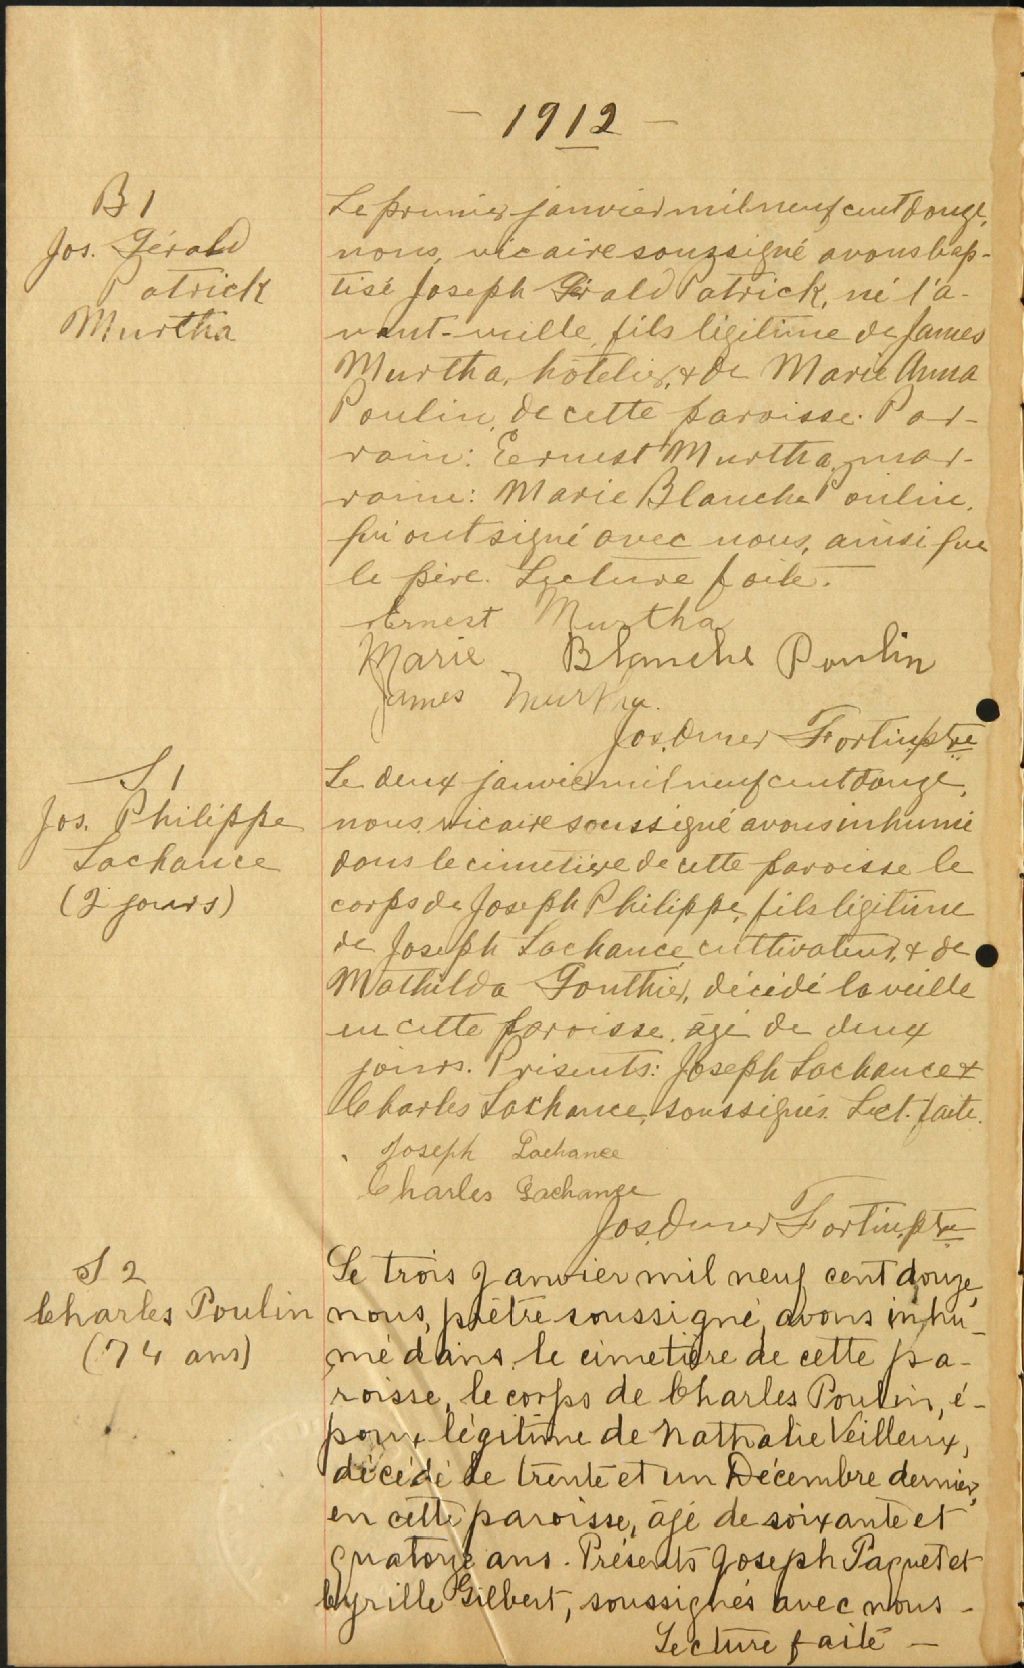 - 1912 -
B 1
Jos. Gérald
Patrick
Murtha
Le premier janvier mil neuf cent douze,
nous, vicaire soussigné avons bap-
tisé Joseph Gérald Patrick, né l'a-
vant-veille, fils légitime de James
Murtha, hôtelier, & de Marie Anna
Poulin, de cette paroisse. Par-
rain: Ernest Murtha, mar-
raine: Marie Blanche Poulin,
qui ont signé avec nous, ainsi que
le père. Lecture faite.
Ernest Murtha
Marie Blanche Poulin
James Murtha
Jos. Omer Fortin, ptre
S 1
Jos. Philippe
Lachance
(2 jours)
Le deux janvier mil neuf cent douze,
nous, vicaire soussigné avons inhumé
dans le cimetière de cette paroisse le
corps de Joseph Philippe, fils légitime
de Joseph Lachance, cultivateur, & de
Mathilda Gouthier, décédé la veille
en cette paroisse, âgé de deux
jours. Présents: Joseph Lachance &
Charles Lachance, soussignés. Lect. faite.
Joseph Lachance
Charles Lachance
Jos. Omer Fortin, ptre
S 2
Charles Poulin
(74 ans)
Le trois Janvier mil neuf cent douze,
nous, prêtre soussigné, avons inhu-
mé dans le cimetière de cette pa-
roisse, le corps de Charles Poulin, é-
poux légitime de Nathalie Veilleux,
décédé le trente et un Décembre dernier,
en cette paroisse, âgé de soixante et
quatorze ans. Présents Joseph Paquet et
Cyrille Gilbert, soussignés avec nous -
Lecture faite -